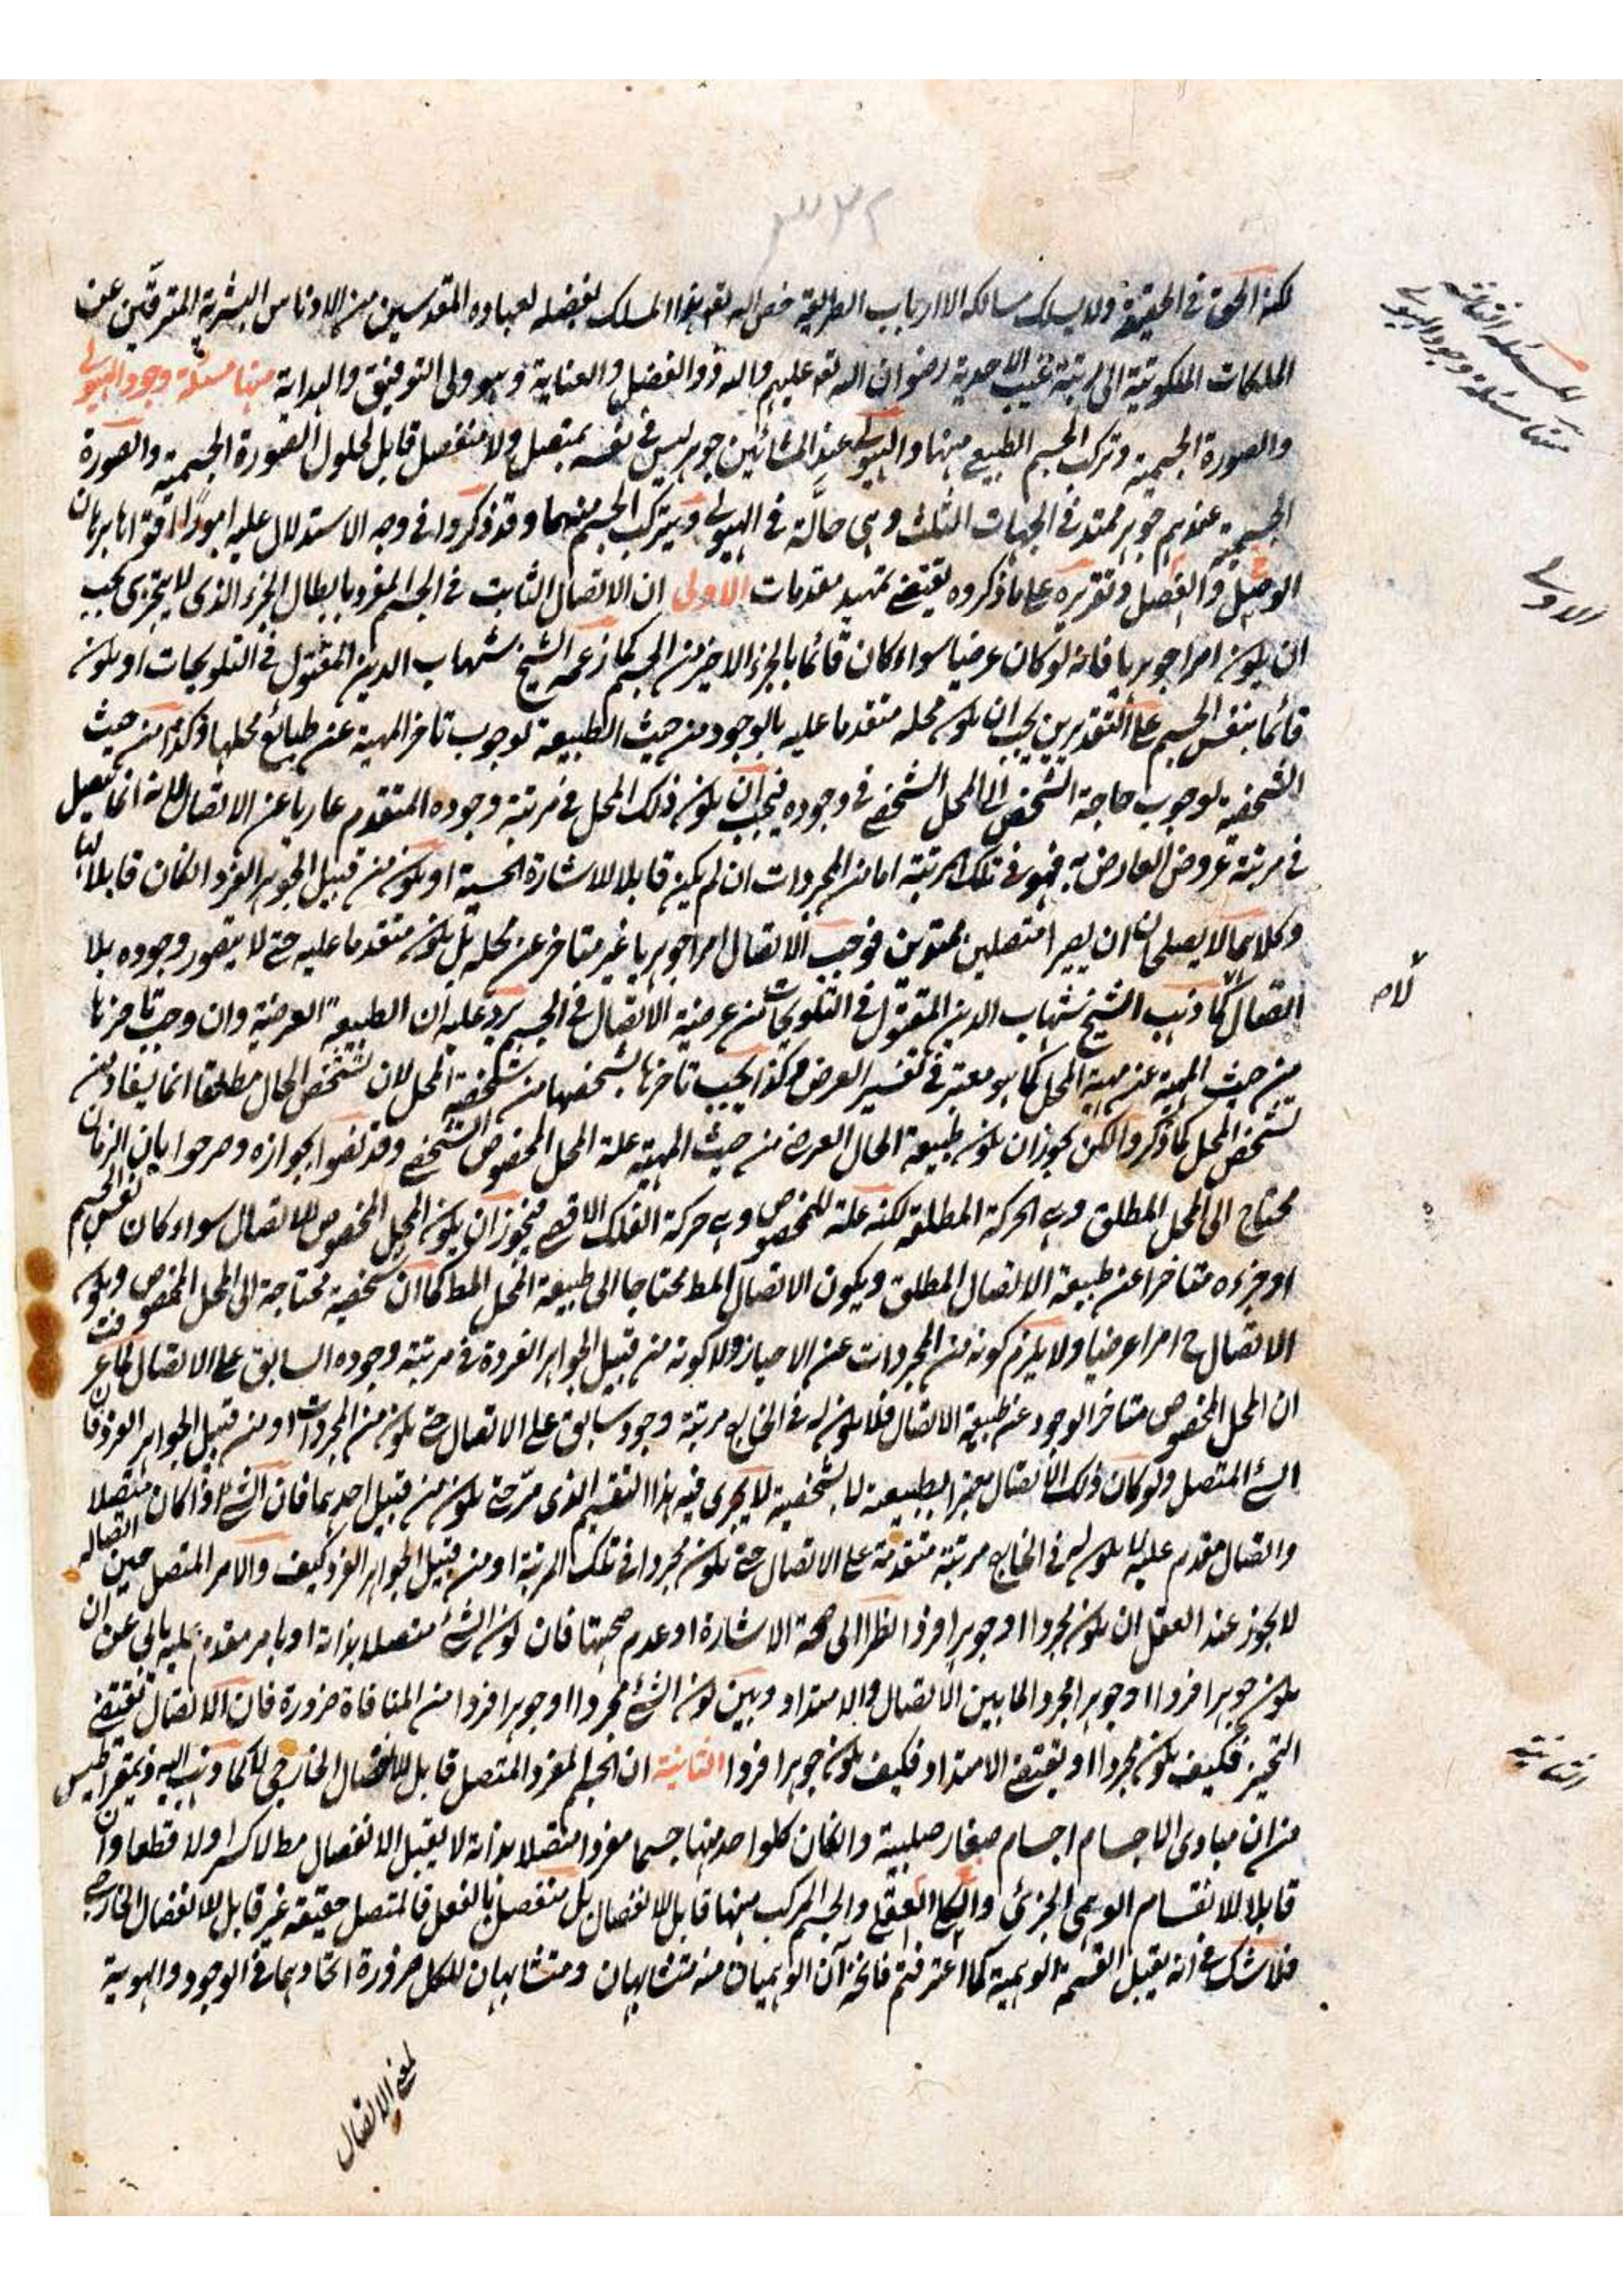 ٣٣٢
لكنه الحق في الحقيقة ولا يسلك مسالكه الا ارباب الطريقة خص الله تعه بهذا المسلك بفضله لعباده المقدسين من الادناس البشرية المترقين عن
الملكات الملكوتية الى رتبة غيب الاحدية رضوان الله تعه عليهم والله ذو الفضل والعناية وهو ولى التوفيق والهداية منها مسئلة وجود الهيولى
والصورة الجسمية وتركب الجسم الطبيعى منهما والهيولى عند المشائين جوهر ليس في نفسه بمتصل ولا منفصل قابل لحلول الصورة الجسمية والصورة
الجسمية عندهم جوهر ممتد في الجهات الثلث وهى حالّة في الهيولى ويتركب الجسم منهما وقد ذكروا في وجه الاستدلال عليه امورًا اقواها برهان
الوصل والفصل وتقريره على ما ذكروه يقتضى تمهيد مقدمات الاولى ان الاتصال الثابت في الجسم المفرد بابطال الجزء الذى لا يتجزى يجب
ان يكون امرا جوهريا فانه لو كان عرضيا سواء كان قائما بالجزء الاخير من الجسم كما زعمه الشيخ شهاب الدين المقتول في التلويحات او يكون
قائما بنفس الجسم على التقديرين يجب ان يكون محله متقدما عليه بالوجود من حيث الطبيعة لوجوب تاخر المهية عن طبائع محلها وكذا من حيث
الشخصية لوجوب حاجة الشخص الى المحل الشخصى في وجوده فيجب ان يكون ذلك المحل في مرتبة وجوده المتقدم عاريا عن الاتصال لانه انما يتصل
في مرتبة عروض العارض به فهو في تلك المرتبة اما من المجردات ان لم يكن قابلا للاشارة الحسية او يكون من قبيل الجوهر الفرد انكان قابلا لها
وكلاهما لا يصلحان ان يصيرا متصلين ممتدين فوجب الاتصال امرا جوهريا غير متاخر عن محله بل يكون متقدما عليه حتى لا يتصور وجوده بلا
اتصال كما ذهب الشيخ شهاب الدين المقتول في التلويحات من عرضية الاتصال في الجسم يرد عليه ان الطبيعة العرضية وان وجب تاخرها
من حيث المهية عن مهية المحل كما هو معتبر في تفسير العرض وكذا يجب تاخرها بشخصها من شخصية المحل لان تشخص الحال مطلقا انما يستفاد من
تشخص المحل كما ذكروا لكن يجوز ان يكون طبيعة الحال العرض من حيث المهية علة المحل المخصوص الشخصى وقد نصوا بجوازه وصرحوا بان الزمان
محتاج الى المحل المطلق وهى الحركة المطلقة لكنه علة للمخصوص وهى حركة الفلك الاقصى فيجوز ان يكون المحل المخصوص للاتصال سواء كان نفس الجسم
او جزءه متاخرا عن طبيعة الاتصال المطلق ويكون الاتصال المط محتاجا الى طبيعة المحل المط كما ان شخصية محتاجة الى المحل المخصوص ويكون
الاتصال ح امرا عرضيا ولا يلزم كونه من المجردات عن الاحياز ولا كونه من قبيل الجواهر الفردة في مرتبة وجوده السابق على الاتصال لما عرفت
ان المحل المخصوص متاخر الوجود عن طبيعة الاتصال فلا يكون له في الخارج مرتبة وجود سابق على الاتصال حتى يكون من المجردات او من قبيل الجواهر الفرد فان
الشئ المتصل ولو كان ذلك الاتصال معتبرا بطبيعته لا بشخصيته لا يجرى فيه هذا التقسيم الذى مرّ حتى يكون من قبيل احدهما فان الشئ اذا كان متصلا
واتصال مقدم عليه لا يكون له في الخارج مرتبة متقدمة على الاتصال حتى يكون مجردا في تلك المرتبة او من قبيل الجواهر الفرد كيف والامر المتصل حين اتصاله
لا يجوز عند العقل ان يكون مجردا او جوهرا فردا نظرا الى صحة الاشارة او عدم صحتها فان كون الشئ متصلا بذاته او بامر مقدم عليه يابى عن ان
يكون جوهرا فردا او جوهرا مجردا لما بين الاتصال والامتداد وبين كون الشئ مجردا او جوهرا فردا من المنافاة ضرورة فان الاتصال يقتضى
التحيز فكيف يكون مجردا او يقتضى الامتداد فكيف يكون جوهرا فردا الثانية ان الجسم المفرد المتصل قابل للانفصال الخارجى لا كما ذهب اليه ذيمقراطيس
من ان مبادى الاجسام اجسام صغار صلبية وانكان كلواحد منها جسما مفردا متصلا بذاته لا يقبل الانفصال مط لا كسرا ولا قطعا وان
قابلا للانقسام الوهمى الجزئى والكلى العقلى والجسم المركب منها قابل للانفصال بل منفصل بالفعل فالمتصل حقيقة غير قابل للانفصال الخارجى
فلا شك في انه يقبل القسمة الوهمية كما اعترفتم فالجزءان الوهميان منه متشابهان ومتشابهان للكل ضرورة اتحادهما في الوجود والهوية
المسئله الثالثه
منها مسئلة وجود الهيولى
الاولى
كلام
الثانية
لمعنى الاتصال